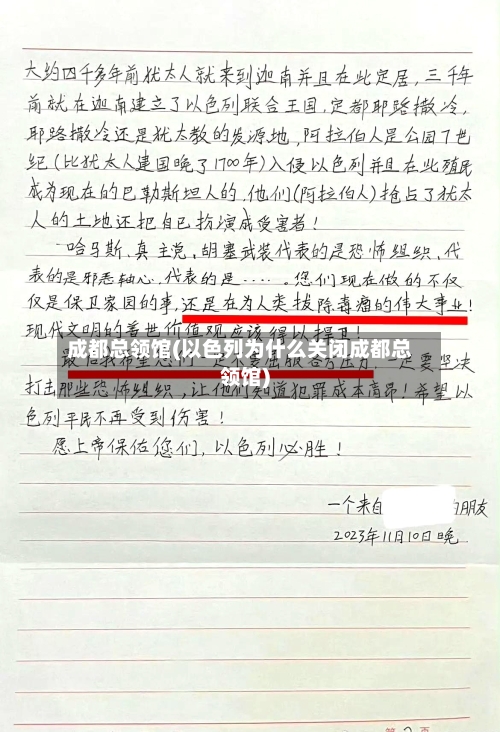 大约四千多年前犹太人就来到迦南并且在此定居，三千年
前就在迦南建立了以色列联合王国，定都耶路撒冷，
耶路撒冷还是犹太教的发源地，阿拉伯人是公园7世
纪（比犹太人建国晚了1700年）入侵以色列并且在此殖民
成为现在的巴勒斯坦人的，他们（阿拉伯人）抢占了犹太
人的土地还把自己扮演成受害者！
哈马斯，真主党，胡塞武装代表的是恐怖组织，代
表的是邪恶轴心，代表的是……。您们现在做的不仅
仅是保卫家园的事，还是在为人类拔除毒瘤的伟大事业！
现代文明的普世价值观应该得以捍卫！
成都总领馆(以色列为什么关闭成都总
领馆)
最后我希望您们一定不要屈服各方压力，一定要坚决
打击那些恐怖组织，让他们知道犯罪成本高昂！希望以
色列平民不再受到伤害！
愿上帝保佑您们，以色列必胜！
一个来自 的朋友
2023年11月10日晚